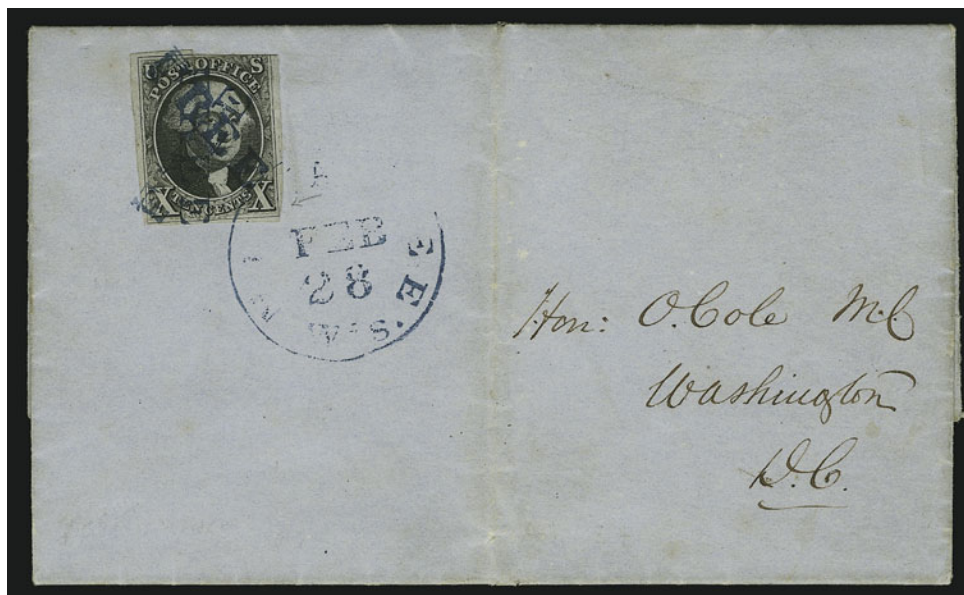 U S
POST OFFICE
X TEN CENTS X
FEB
28
Hon: O. Cole M.C
Washington
D.C.